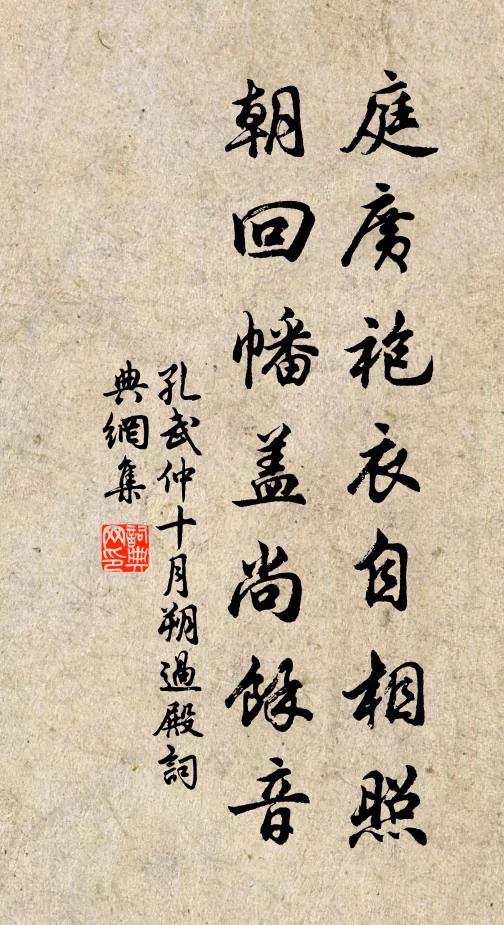 庭廣袍衣自相照
朝回幡盖尚餘音
孔武仲十月朔過殿詞
典網集
詞典
网印